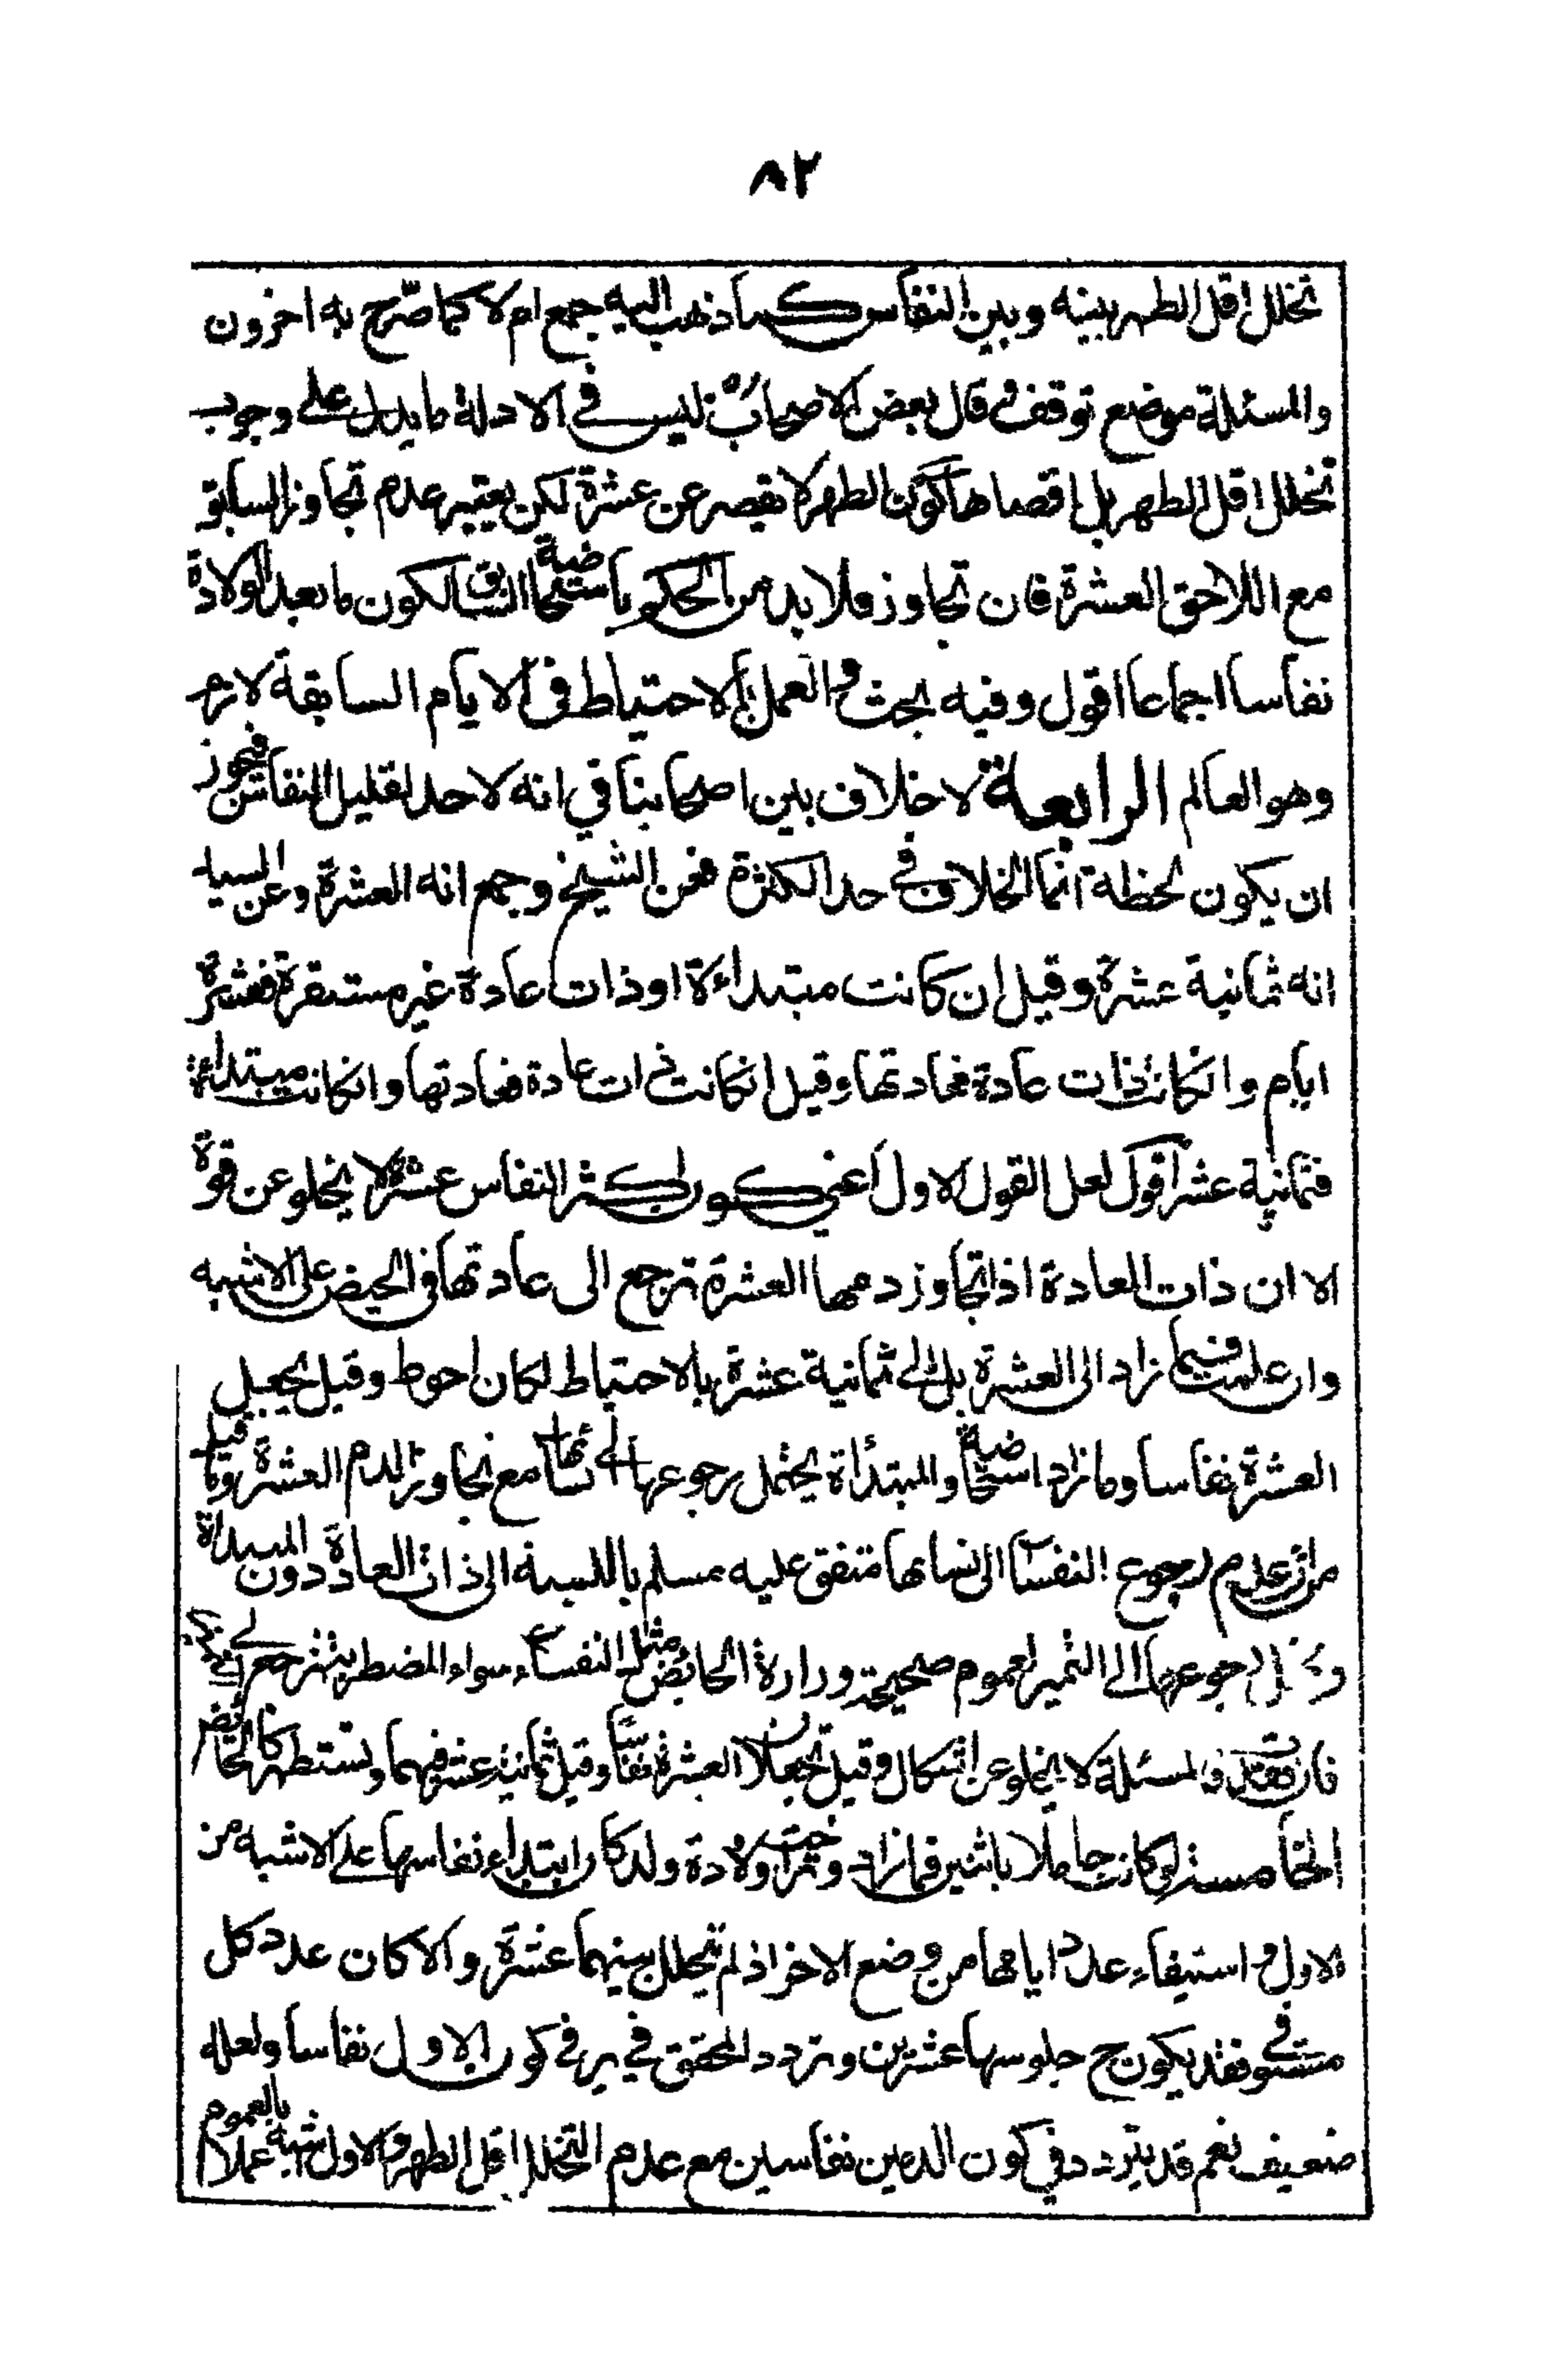 ٨٢
تخلل اقل الطهر بينه وبين النفاس كما ذهب اليه جمع ام لا كما صرّح به اخرون
والمسئلة موضع توقف قال بعض الاصحاب ليس في الادلة ما يدل على وجوب
تخلل اقل الطهر بل اقصاها كون الطهر لا يقصر عن عشرة لكن يعتبر عدم تجاوز السابق
مع اللاحق العشرة فان تجاوز فلا بد من الحكم باستحاضية السابق لكون ما بعد الولادة
نفاسا اجماعا اقول وفيه بحث والعمل بالاحتياط في الايام السابقة لازم
وهو العالم الرابعة لا خلاف بين اصحابنا في انه لا حد لقليل النفاس فيجوز
ان يكون لحظة انما الخلاف في حد الكثرة فعن الشيخ وجمع انه العشرة وعن السيد
انه ثمانية عشرة وقيل ان كانت مبتداءة او ذات عادة غير مستقرة فعشرة
ايام وانكانت ذات عادة فعادتها وقيل انكانت ذات عادة فعادتها وانكانت مبتداءة
فثمانية عشر اقول لعل القول الاول اعني كون اكثر النفاس عشرة لا يخلو عن قوة
الا ان ذات العادة اذا تجاوز دمها العشرة ترجع الى عادتها في الحيض على الاشبه
وان عملت فيما زاد الى العشرة بل الى ثمانية عشرة بالاحتياط لكان احوط وقيل يجعل
العشرة نفاسا وما زاد استحاضة والمبتدأة يحتمل رجوعها الى نسائها مع تجاوز الدم العشرة وما قيل
من ان عدم رجوع النفساء الى نسائها متفق عليه مسلم بالنسبة الى ذات العادة دون المبتدأة
رجوعها الى التميز لعموم صحيحة زرارة الحائض مثل النفساء سواء المضطربة ترجع الى
فان فقدت فالمسئلة لا يخلو عن اشكال وقيل تجعلان العشرة نفاسا وقيل ثمانية عشر فيهما وتستظهر كالحائض
الخامسة لو كانت حاملا باثنين فما زاد وتراخت ولادة ولد كان ابتداء نفاسها على الاشبه من
الاول واستيفاء عدد ايامها من وضع الاخر اذ لم يتخلل بينهما عشرة والا كان عدد كل
مستوفى فقد يكون ح جلوسها عشرين وتردد المحقق في ير في كون الاول نفاسا ولعله
ضعيف نعم قد يتردد في كون الدمين نفاسين مع عدم التخلل اقل الطهر والاول اشبه عملا بالعموم